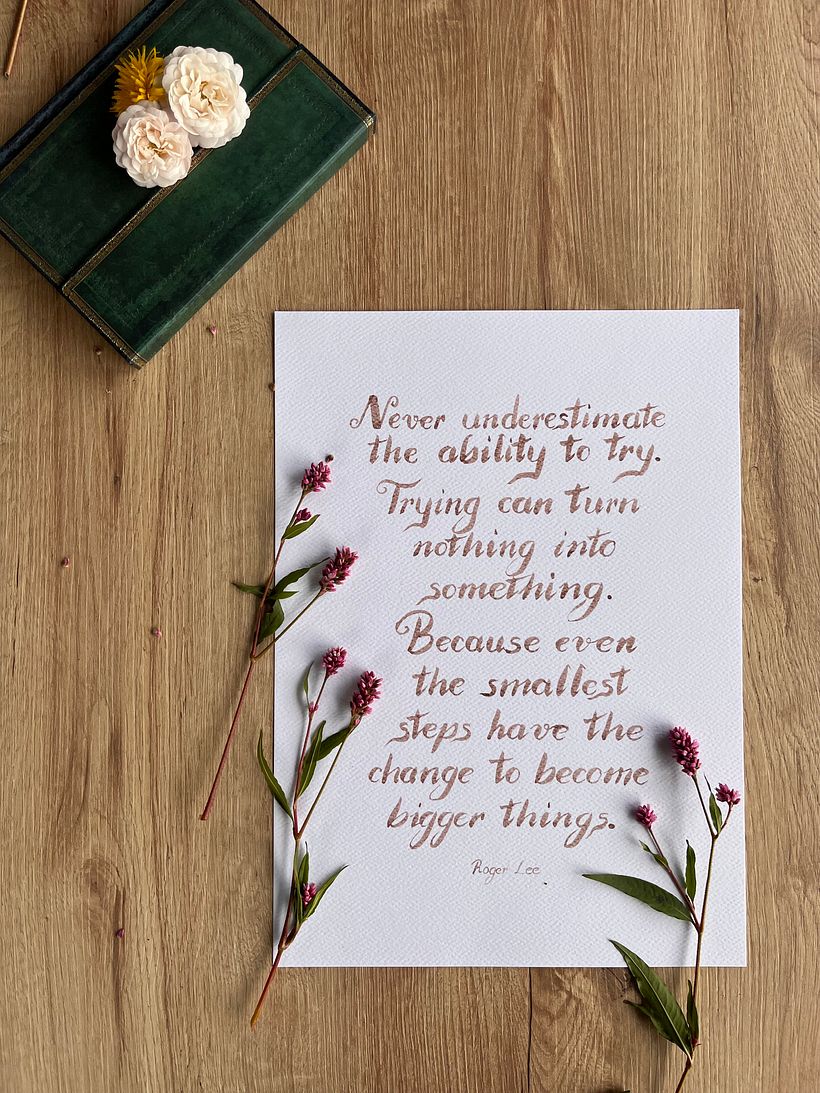 Never underestimate
the ability to try.
Trying can turn
nothing into
something.
Because even
the smallest
steps have the
change to become
bigger things.
Roger Lee